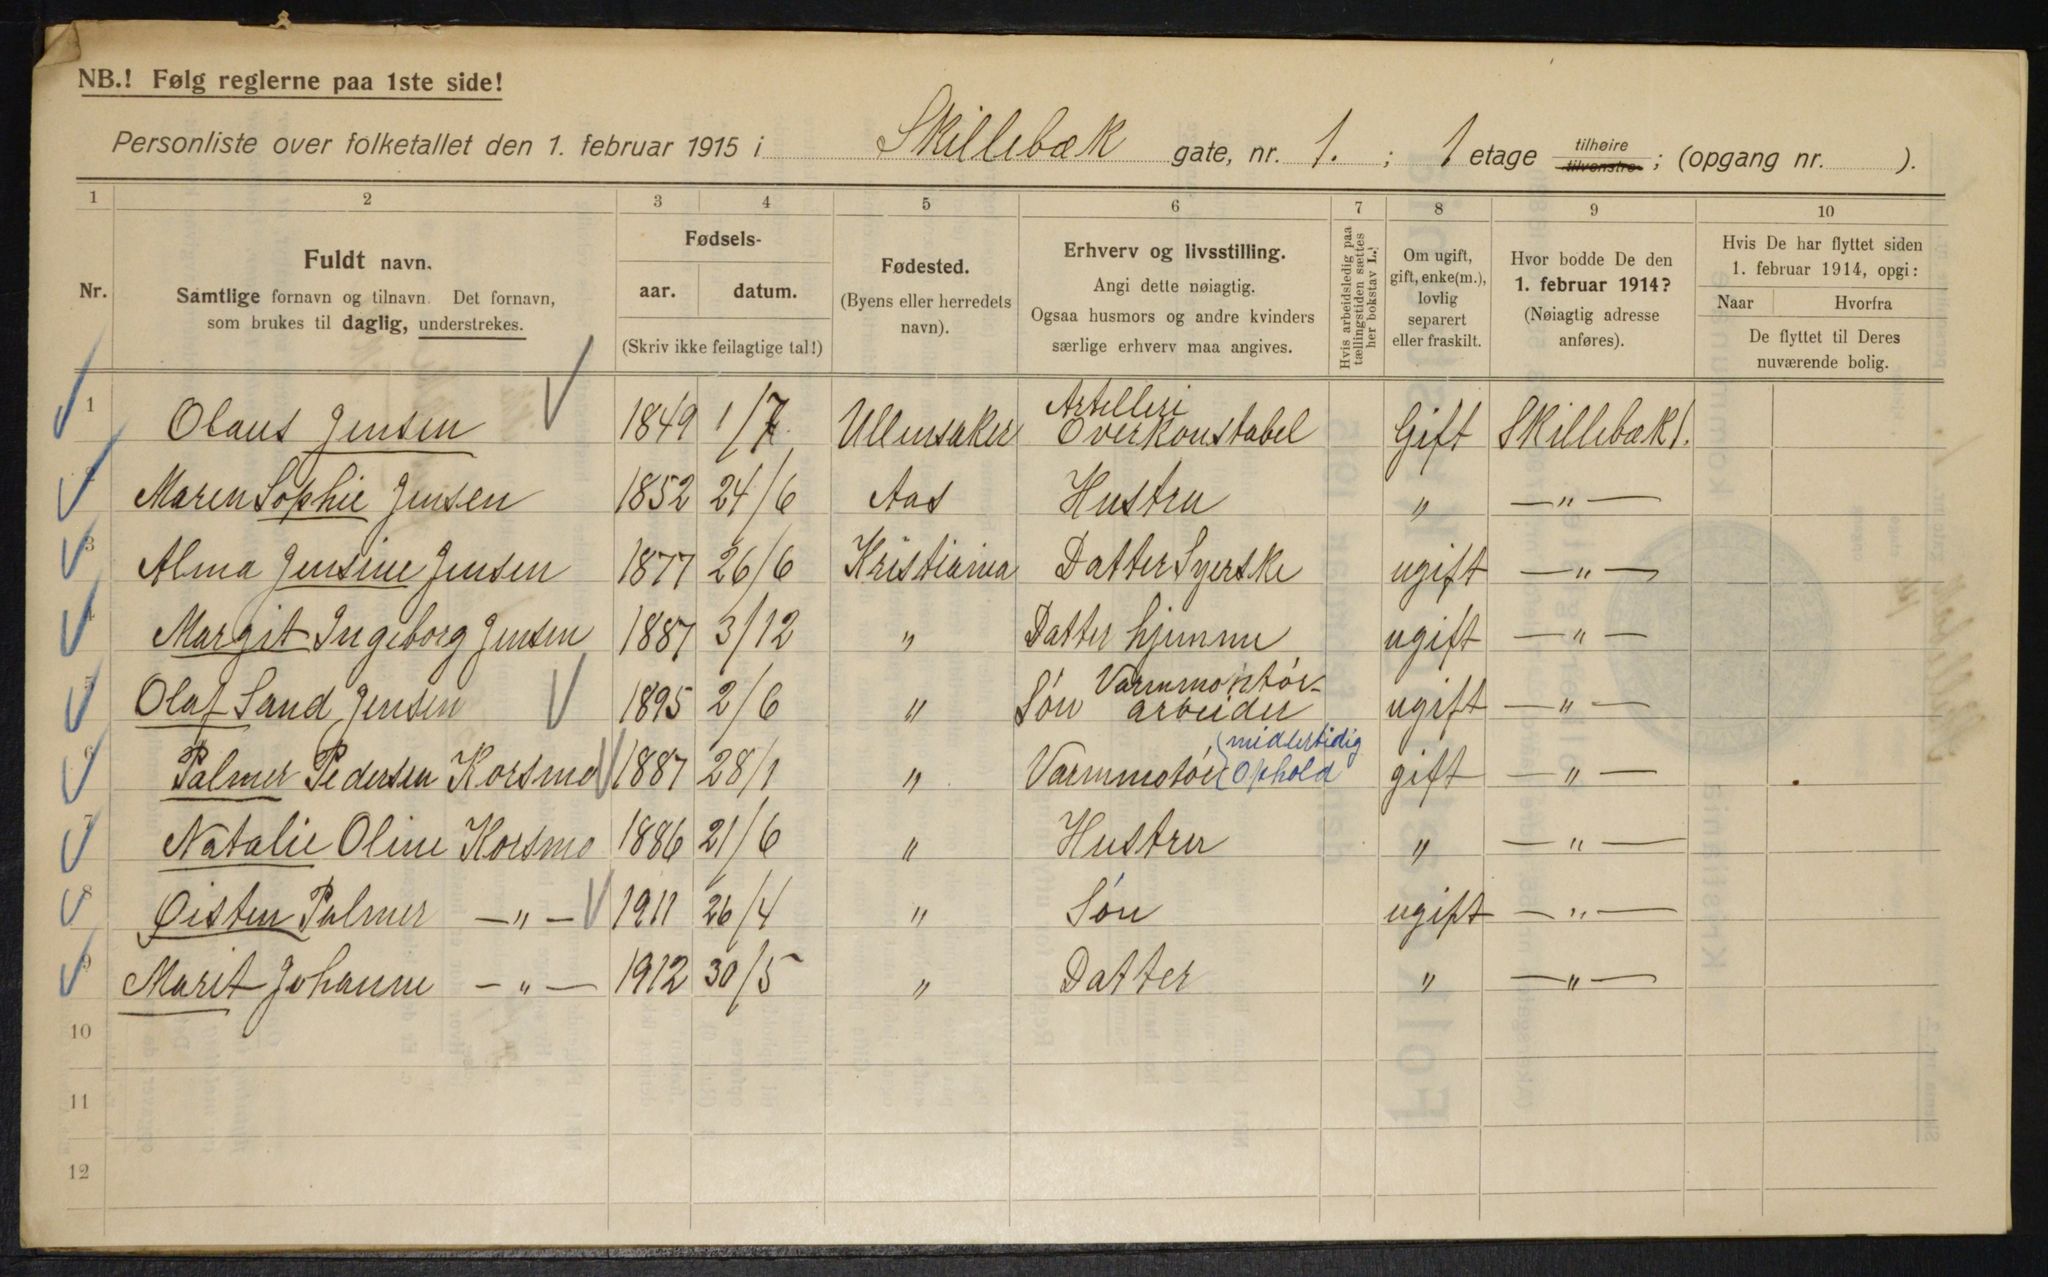 NB.! Følg reglerne paa 1ste side!
Personliste over folketallet den 1. februar 1915 i Skillebæk gate, nr. 1. ; 1 etage tilhøire tilvenstre ; (opgang nr. ).
1 2 3 4 5 6 7 8 9 10
Nr.
Fuldt navn.
Samtlige fornavn og tilnavn. Det fornavn,
som brukes til daglig, understrekes.
Fødsels-
aar. datum.
(Skriv ikke feilagtige tal!)
Fødested.
(Byens eller herredets
navn).
Erhverv og livsstilling.
Angi dette nøiagtig.
Ogsaa husmors og andre kvinders
særlige erhverv maa angives.
Hvis arbeidsledig paa
tællingstiden sættes
her bokstav L.!
Om ugift,
gift, enke(m.),
lovlig
separert
eller fraskilt.
Hvor bodde De den
1. februar 1914?
(Nøiagtig adresse
anføres).
Hvis De har flyttet siden
1. februar 1914, opgi:
Naar Hvorfra
De flyttet til Deres
nuværende bolig.
1 Olaus Jensen 1849 1/7 Ullensaker Artelleri Overkonstabel Gift Skillebæk 1.
2 Maren Sophie Jensen 1852 24/6 Aas Hustru " —"—
3 Alma Jensine Jensen 1877 26/6 Kristiania Datter Syerske ugift —"—
4 Margit Ingeborg Jensen 1887 3/12 " Datter hjemme ugift —"—
5 Olaf Sand Jensen 1895 2/6 " Søn Varmmontør- arbeider ugift —"—
6 Palmer Pedersen Korsmo 1887 28/1 " Varmmotør (midlertidig Ophold gift —"—
7 Natalie Oline Korsmo 1886 21/6 " Hustru " —"—
8 Øisten Palmer —"— 1911 26/4 " Søn ugift —"—
9 Marit Johanne —"— 1912 30/5 " Datter " —"—
10
11
12